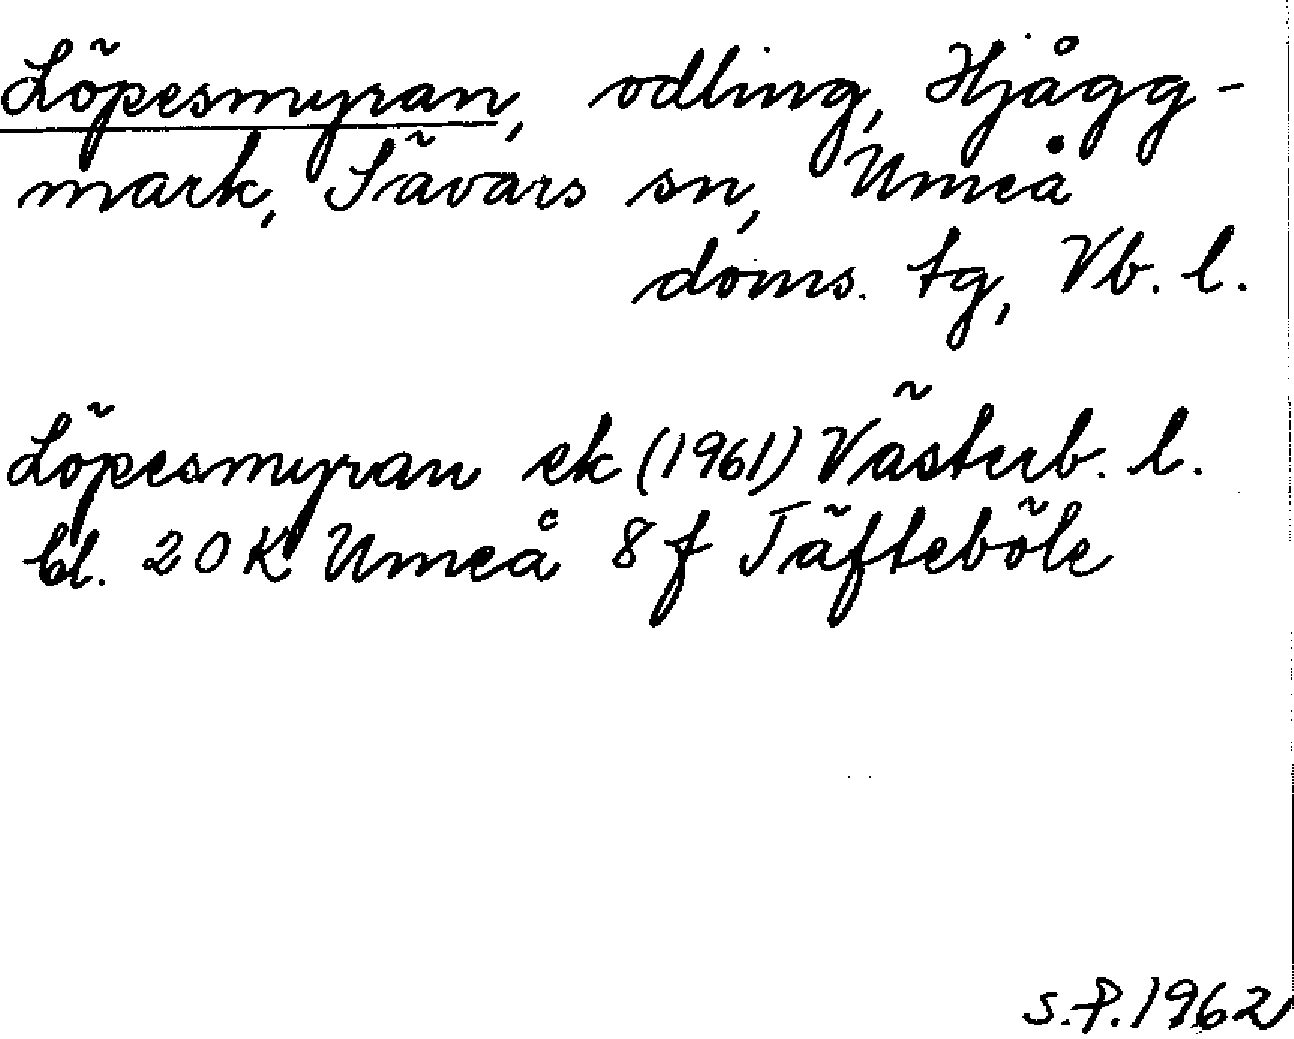 Löpesmyran, odling, Hjågg-
mark, Sävars sn, Umeå
doms. tg, Vb. l.
Löpesmyran ek (1961) Västerb. l.
bl. 20 K Umeå 8 f Täfteböle
S.P. 1962